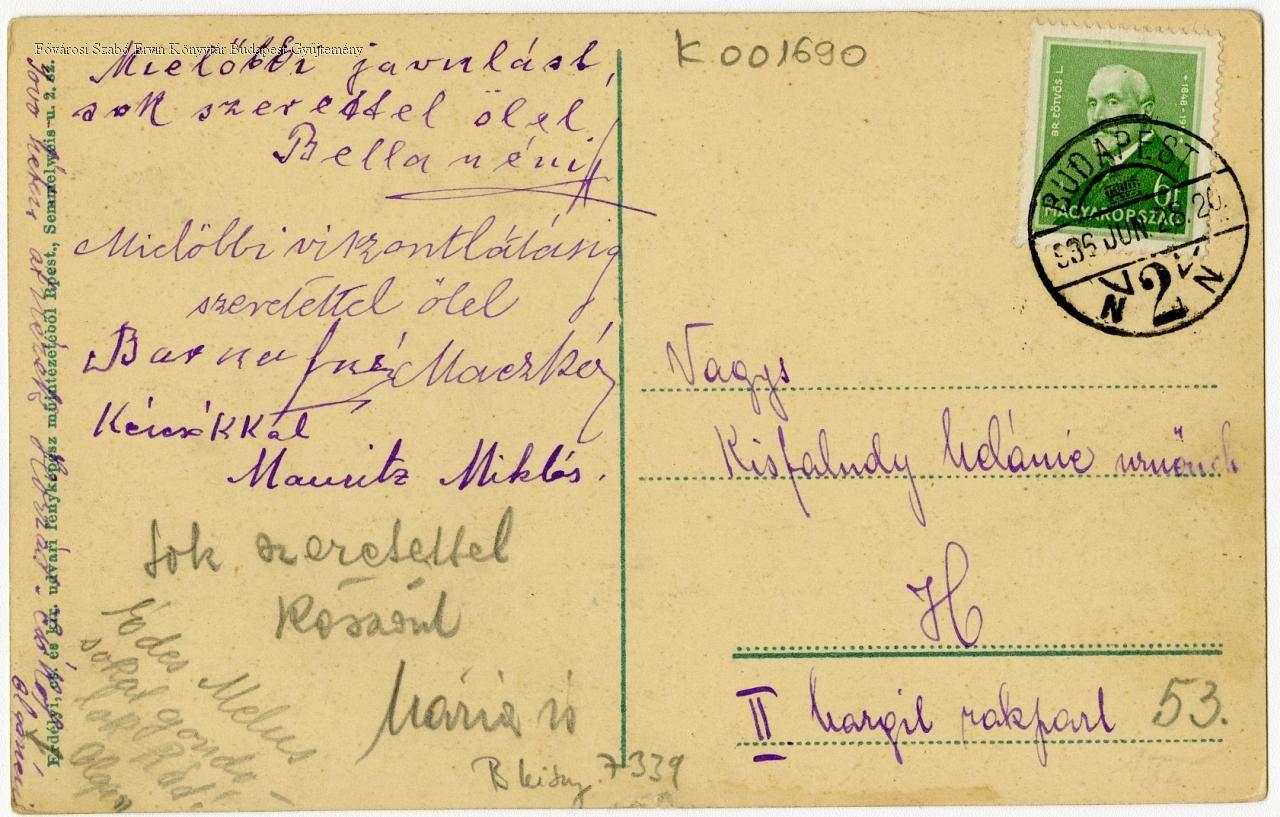 Fővárosi Szabó Ervin Könyvtár Budapest Gyűjtemény
K 001690
Mielőbbi javulást,
sok szeretettel ölel
Bella néni
Mielőbbi viszontlátásig
szeretettel ölel
Barna
Kézcsókkal
Mauritz Miklós.
Sok szeretettel
Köszönt
Mária
Édes Melus
sokat gondo-
lok Rád!
Olga
Erdélyi, cs. és kir. udvari fényképész műintézetéből Bpest., Semmelweis-u. 2. sz.
BR. EÖTVÖS L.
6f
MAGYARORSZÁG
BUDAPEST
936 JUN. 20.
2
Nagys
Kisfaludy
H
II Margit rakpart 53.
7339